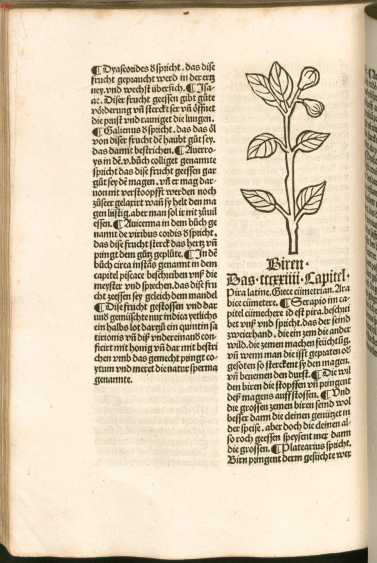 ¶ Dyascorides d͛ spricht. das dise
frucht gepraucht werd in der ertz
ney. vnd wechst übersich. ¶ Isa-
ac. Diser frucht geessen gibt gůte
vöiderung vn̄ sterckt ser vn̄ öffnet
die prust vnd raumget die lungen.
¶ Galienus d͛ spricht. das das öl
von diser frucht dē haubt gůt sey.
das damit bestrichen. ¶ Auerro-
ys in dē .v. bůch colliget genannte
spricht das dise frucht geessen gar
gůt sey dē magen. vn̄ er mag dar-
von nit verstopfft werden noch
zůseer gelaxirt wañ sy helt den ma
gen lustig. aber man sol ir nit zůuil
essen. ¶ Auicenna in dem bůch ge
nannt de viribus cordis d͛ spricht.
das dise frucht sterck das hertz vn̄
pringt dem gůtz geplüte. ¶ In dē
bůch circa instās genannt in dem
capitel piscace beschreiben vnß die
meyster vnd sprechen. das dise fru
cht zeessen sey geleich dem mandel
¶ Dise frucht gestossen vnd dar
vnd gemüschte nux indica yetlichs
ein halbs lot darzů ein quintin sa
tirionis vn̄ diß vndereinand͛ con-
ficirt mit honig vn̄ dar mit bestri
chen vnnb das gemecht pringt co-
ytum vnd meret die natur sperma
genannte.
Biren.
Das .cccxiiii. Capitel.
Pira latine. Grece cumetrian. Ara
bice cumetere. ¶ Serapio im ca-
pitel cumechere id est pira. beschri
bet vnß vnd spricht. das der seind
zweierhand. die ein zem die ander
wild. die zemen machen feüchtūg.
vn̄ wenn man die isset gepraten od͛
gesoten so sterckent sy den magen.
vn̄ benemen den durst. ¶ Die wil
den biren die stopffen vn̄ pringent
deß magens auffstossen. ¶ Vnd
die grossen zemen biren seind wol
besser dann die cleinen genützet in
der speise. aber doch die cleinen al-
so roch geessen speysent mer dann
die grossen. ¶ Platearius spricht.
Birn pringent derm gesüchte wer